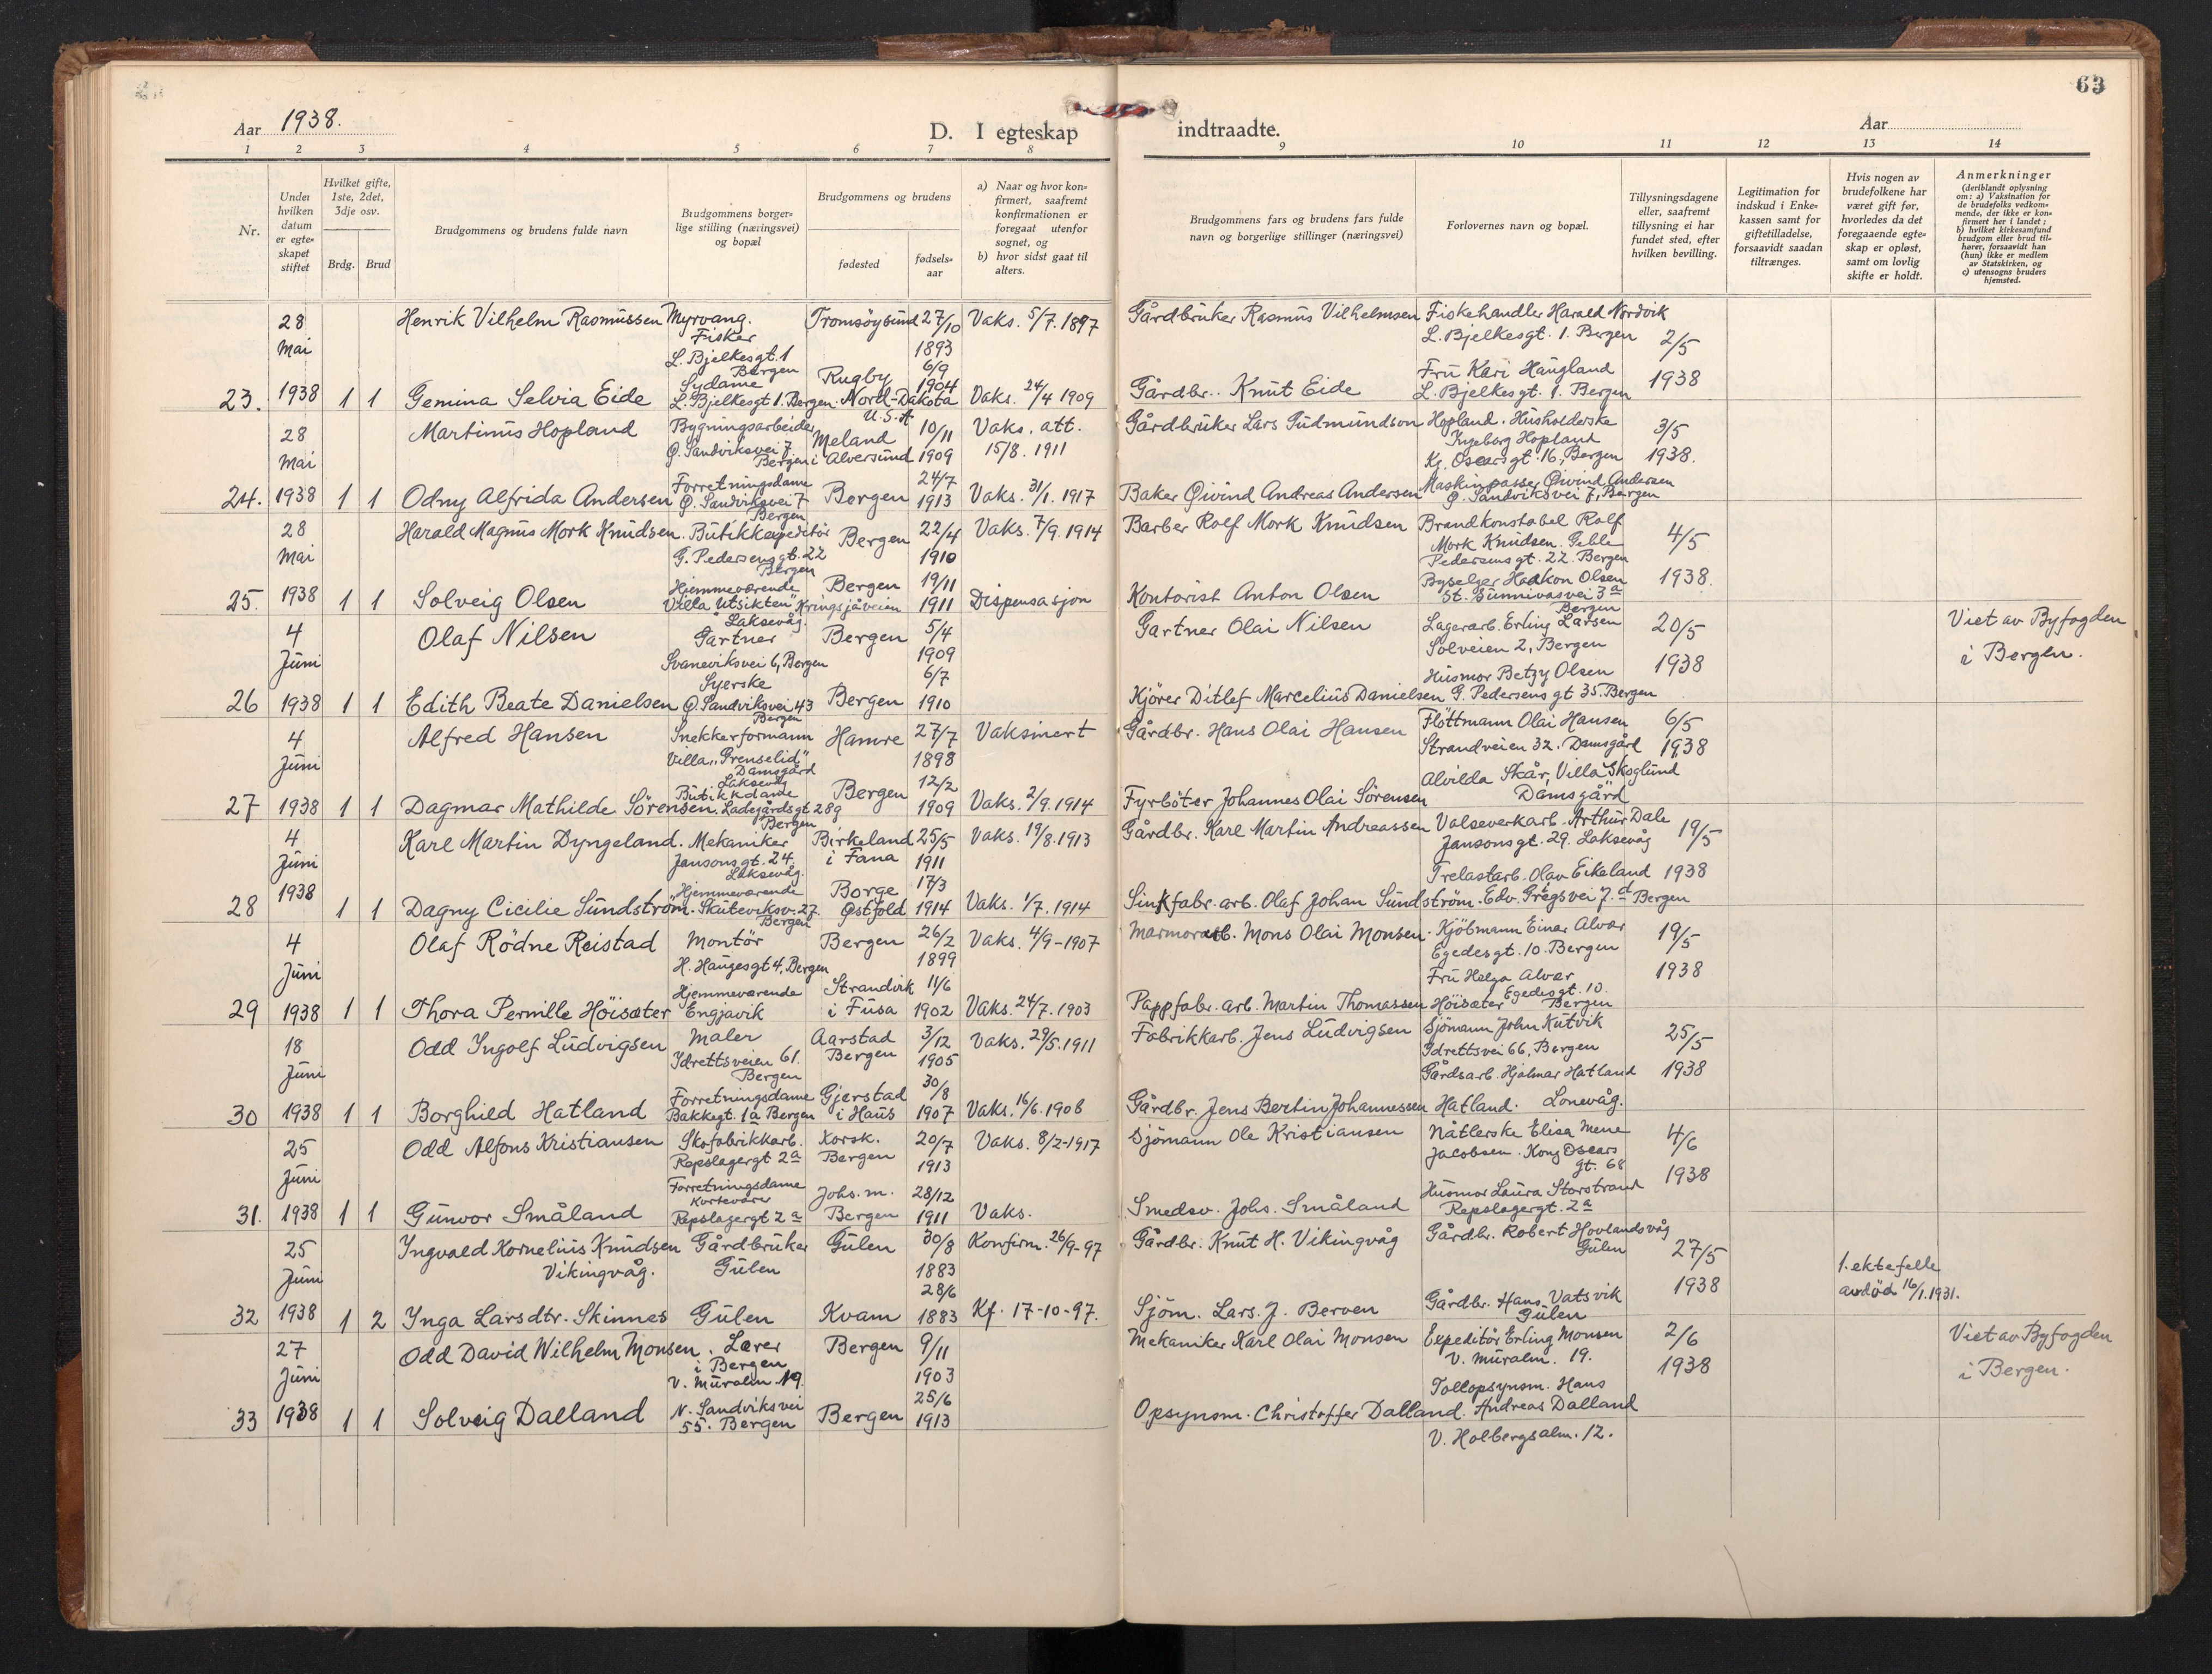 63
Aar 1938.
D. I egteskap
indtraadte.
Aar
1 2 3 4 5 6 7 8 9 10 11 12 13 14
Nr.
Under hvilken datum er egte-skapet stiftet
Hvilket gifte, 1ste, 2det, 3dje osv.
Brdg. Brud
Brudgommens og brudens fulde navn
Brudgommens borger-lige stilling (næringsvei) og bopæl
Brudgommens og brudens
fødested
fødsels-aar
a) Naar og hvor kon-firmert, saafremt konfirmationen er foregaat utenfor sognet, og
b) hvor sidst gaat til alters.
Brudgommens fars og brudens fars fulde navn og borgerlige stillinger (næringsvei)
Forlovernes navn og bopæl.
Tillysningsdagene eller, saafremt tillysning ei har fundet sted, efter hvilken bevilling.
Legitimation for indskud i Enke-kassen samt for giftetilladelse, forsaavidt saadan tiltrænges.
Hvis nogen av brudefolkene har været gift før, hvorledes da det foregaaende egte-skap er opløst, samt om lovlig skifte er holdt.
Anmerkninger
(deriblandt oplysning om: a) Vaksination for de brudefolks vedkom-mende, der ikke er kon-firmert her i landet; b) hvilket kirkesamfund brudgom eller brud til-hører, forsaavidt han (hun) ikke er medlem av Statskirken, og c) utensogns bruders hjemsted.
28 Mai 1938
Henrik Vilhelm Rasmussen Myrvang.
Fisker
L. Bjelkesgt. 1
Bergen
Tromsöysund 27/10 1893
Vaks. 5/7. 1897
Gårdbruker Rasmus Vilhelmsen
Fiskehandler Harald Nordvik
L. Bjelkesgt. 1. Bergen
2/5
1938
23. 1 1
Gemina Selvia Eide
Sydame
L. Bjelkesgt 1. Bergen.
Rugby Nord-Dakota U.S.A
6/9 1904
Vaks. 24/4 1909
Gårdbr. Knut Eide
Fru Kari Haugland
L. Bjelkesgt. 1. Bergen
28 Mai 1938
Martinus Hopland
Bygningsarbeider
Ø. Sandviksvei 7
Bergen
Meland i Alversund
10/11 1909
Vaks. att. 15/8. 1911
Gårdbruker Lars Gudmundson Hopland.
Husholderske
Ingeborg Hopland
Kg. Oscarsgt. 16, Bergen
3/5
1938.
24. 1 1
Odny Alfrida Andersen
Forretningsdame
Ø. Sandviksvei 7
Bergen
Bergen 24/7 1913
Vaks. 31/1. 1917
Baker Øivind Andreas Andersen
Maskinpasser Øivind Andersen
Ø. Sandviksvei 7, Bergen
28 Mai 1938
Harald Magnus Mork Knudsen.
Butikkexpeditör
G. Pedersens gt. 22
Bergen
Bergen 22/4 1910
Vaks. 7/9. 1914
Barber Rolf Mork Knudsen
Brandkonstabel Rolf
Mork Knudsen. Geble
Pedersens gt. 22. Bergen
4/5
1938.
25. 1 1
Solveig Olsen
Hjemmeværende
Villa "Utsikten" Kringsjåveien
Laksevåg.
Bergen 19/11 1911
Dispensasjon
Kontorist Anton Olsen
Byselger Haakon Olsen
St. Sunnivasvei 3a
Bergen
4 Juni 1938
Olaf Nilsen
Gartner
Svaneviksvei 6, Bergen
Bergen 5/4 1909
Gartner Olai Nilsen
Lagerarb. Erling Larsen
Solveien 2, Bergen
20/5
1938
Viet av Byfogden
i Bergen.
26 1 1
Edith Beate Danielsen
Syerske
Ø. Sandviksvei 43
Bergen
Bergen 6/7 1910
Kjörer Ditlef Marcelius Danielsen
Husmor Betzy Olsen
G. Pedersens gt 35. Bergen
4 Juni 1938
Alfred Hansen
Snekkerformann
Villa "Grenselid"
Damsgård
Laksevåg
Hamre 27/7 1898
Vaksinert
Gårdbr. Hans Olai Hansen
Flöttmann Olai Hansen
Strandveien 32. Damsgård
6/5
1938
27 1 1
Dagmar Mathilde Sörensen.
Butikkdame
Ladegårdsgt 28g
Bergen
Bergen 12/2 1909
Vaks. 2/9. 1914
Fyrböter Johannes Olai Sörensen
Alvilda Skår, Villa "Skoglund"
Damsgård
4 Juni 1938
Karl Martin Dyngeland.
Mekaniker
Jansonsgt. 24
Laksevåg.
Birkeland i Fana
25/5 1911
Vaks. 19/8. 1913
Gårdbr. Karl Martin Andreassen
Valseverkarb. Arthur Dale
Jansonsgt. 29. Laksevåg
19/5
1938
28 1 1
Dagny Cicilie Sundström.
Hjemmeværende
Skuteviksv. 27.
Bergen
Borge Østfold
17/3 1914
Vaks. 1/7. 1914
Sinkfabr. arb. Olaf Johan Sundström.
Trelastarb. Olav Eikeland
Edv. Griegsvei 7.d Bergen
4 Juni 1938
Olaf Rödne Reistad
Montör
H. Haugesgt 4, Bergen
Bergen 26/2 1899
Vaks. 4/9-1907
Marmorarb. Mons Olai Monsen.
Kjöbmann Einar Alvær
Egedesgt. 10. Bergen
19/5
1938
29 1 1
Thora Pernille Höisæter
Hjemmeværende
Engjavik
Strandvik i Fusa
11/6 1902
Vaks. 24/7. 1903
Pappfabr. arb. Martin Thomassen Höisæter
Fru Helga Alvær
Egedesgt. 10.
Bergen
18 Juni 1938
Odd Ingolf Ludvigsen
Maler
Idrettsveien 61.
Bergen
Aarstad Bergen
3/12 1905
Vaks. 29/5. 1911
Fabrikkarb. Jens Ludvigsen
Sjömann John Kutvik
Idrettsvei 66, Bergen
25/5
1938
30 1 1
Borghild Hatland
Forretningsdame
Bakkegt. 1a Bergen
Gjerstad i Haus
30/8 1907
Vaks. 16/6. 1908
Gårdbr. Jens Bertin Johannessen Hatland.
Gårdsarb. Hjalmar Hatland
Lonevåg.
25 Juni 1938
Odd Alfons Kristiansen
Skofabrikkarb.
Repslagergt 2a
Korsk. Bergen
20/7 1913
Vaks. 8/2-1917
Sjömann Ole Kristiansen
Nåtlerske Elisa Mene
Jacobsen. Kong Oscars
gt. 68
4/6
1938
31. 1 1
Gunvor Småland
Forretningsdame
Kortevare
Repslagergt 2a
Johs. m. Bergen
28/12 1911
Vaks.
Smedsv. Johs. Småland
Husmor Laura Storstrand
Repslagergt. 2a
25 Juni 1938
Ingvald Kornelius Knudsen
Vikingvåg.
Gårdbruker
Gulen
Gulen 30/8 1883
Konfirm. 26/9-97
Gårdbr. Knut H. Vikingvåg
Gårdbr. Robert Hovlandsvåg
Gulen
27/5
1938
1. ektefelle
avdöd 16/1. 1931.
32 1 2
Inga Larsdtr. Skinnes
Gulen
Kvam 28/6 1883
Kf. 17-10-97.
Sjöm. Lars. J. Berven
Gårdbr. Hans Vatsvik
Gulen
27 Juni 1938
Odd David Wilhelm Monsen.
Lærer
i Bergen
V. Muralm. 19.
Bergen 9/11 1903
Mekaniker Karl Olai Monsen
Expeditör Erling Monsen
V. Muralm. 19.
2/6
1938
Viet av Byfogden
i Bergen.
33 1 1
Solveig Dalland
N. Sandviksvei
55. Bergen
Bergen 25/6 1913
Opsynsm. Christoffer Dalland.
Tollopsynsm. Hans
Andreas Dalland
V. Holbergsalm. 12.